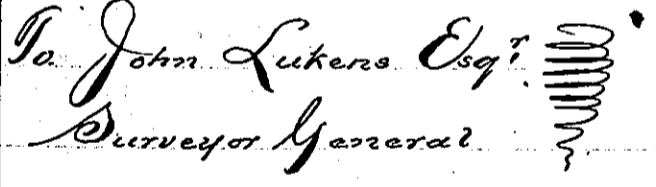 To John Lukens Esqr.
Surveyor General